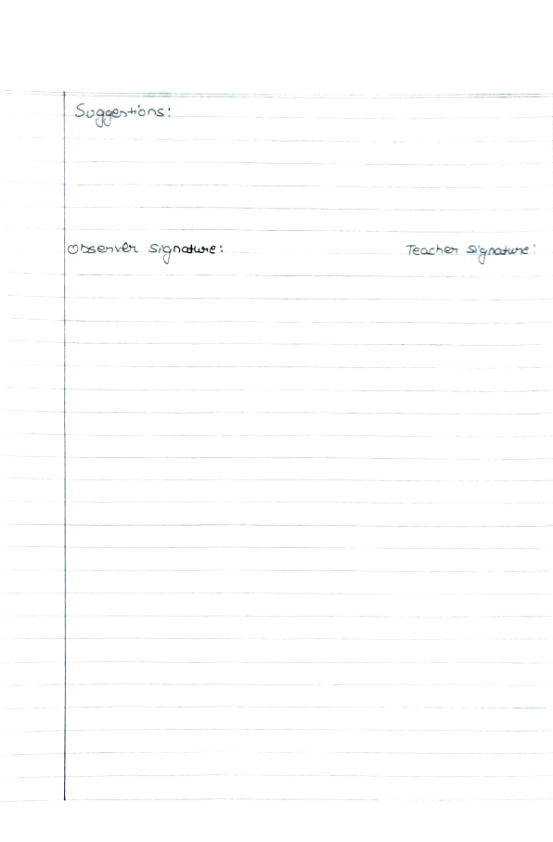 Suggestions:
Observer Signature: Teacher Signature: